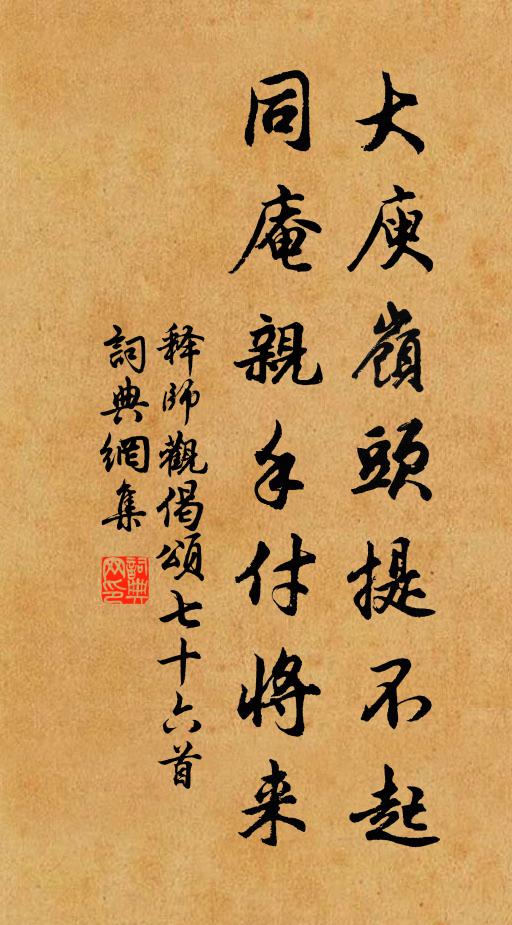 大庾嶺頭提不起
同庵親手付將来
释師觀偈頌七十六首
詞典網集
詞典网印